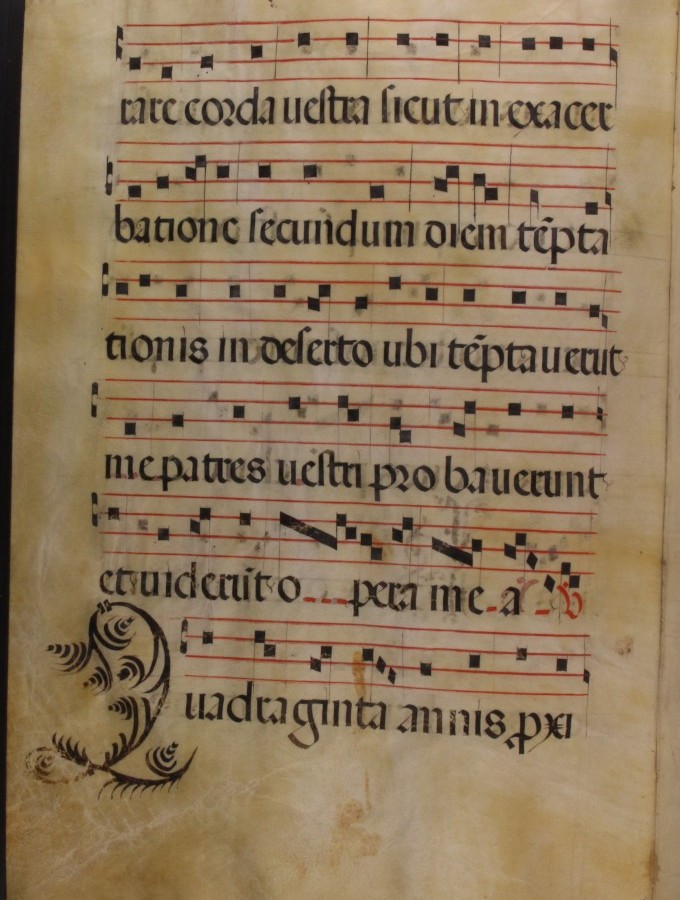 rare corda uestra sicut in exacer
batione secundum diem tẽpta
tionis in deserto ubi tẽptauerũt
me patres uestri probauerunt
et uiderũt o pera me a ℣
Quadraginta annis ꝓxi